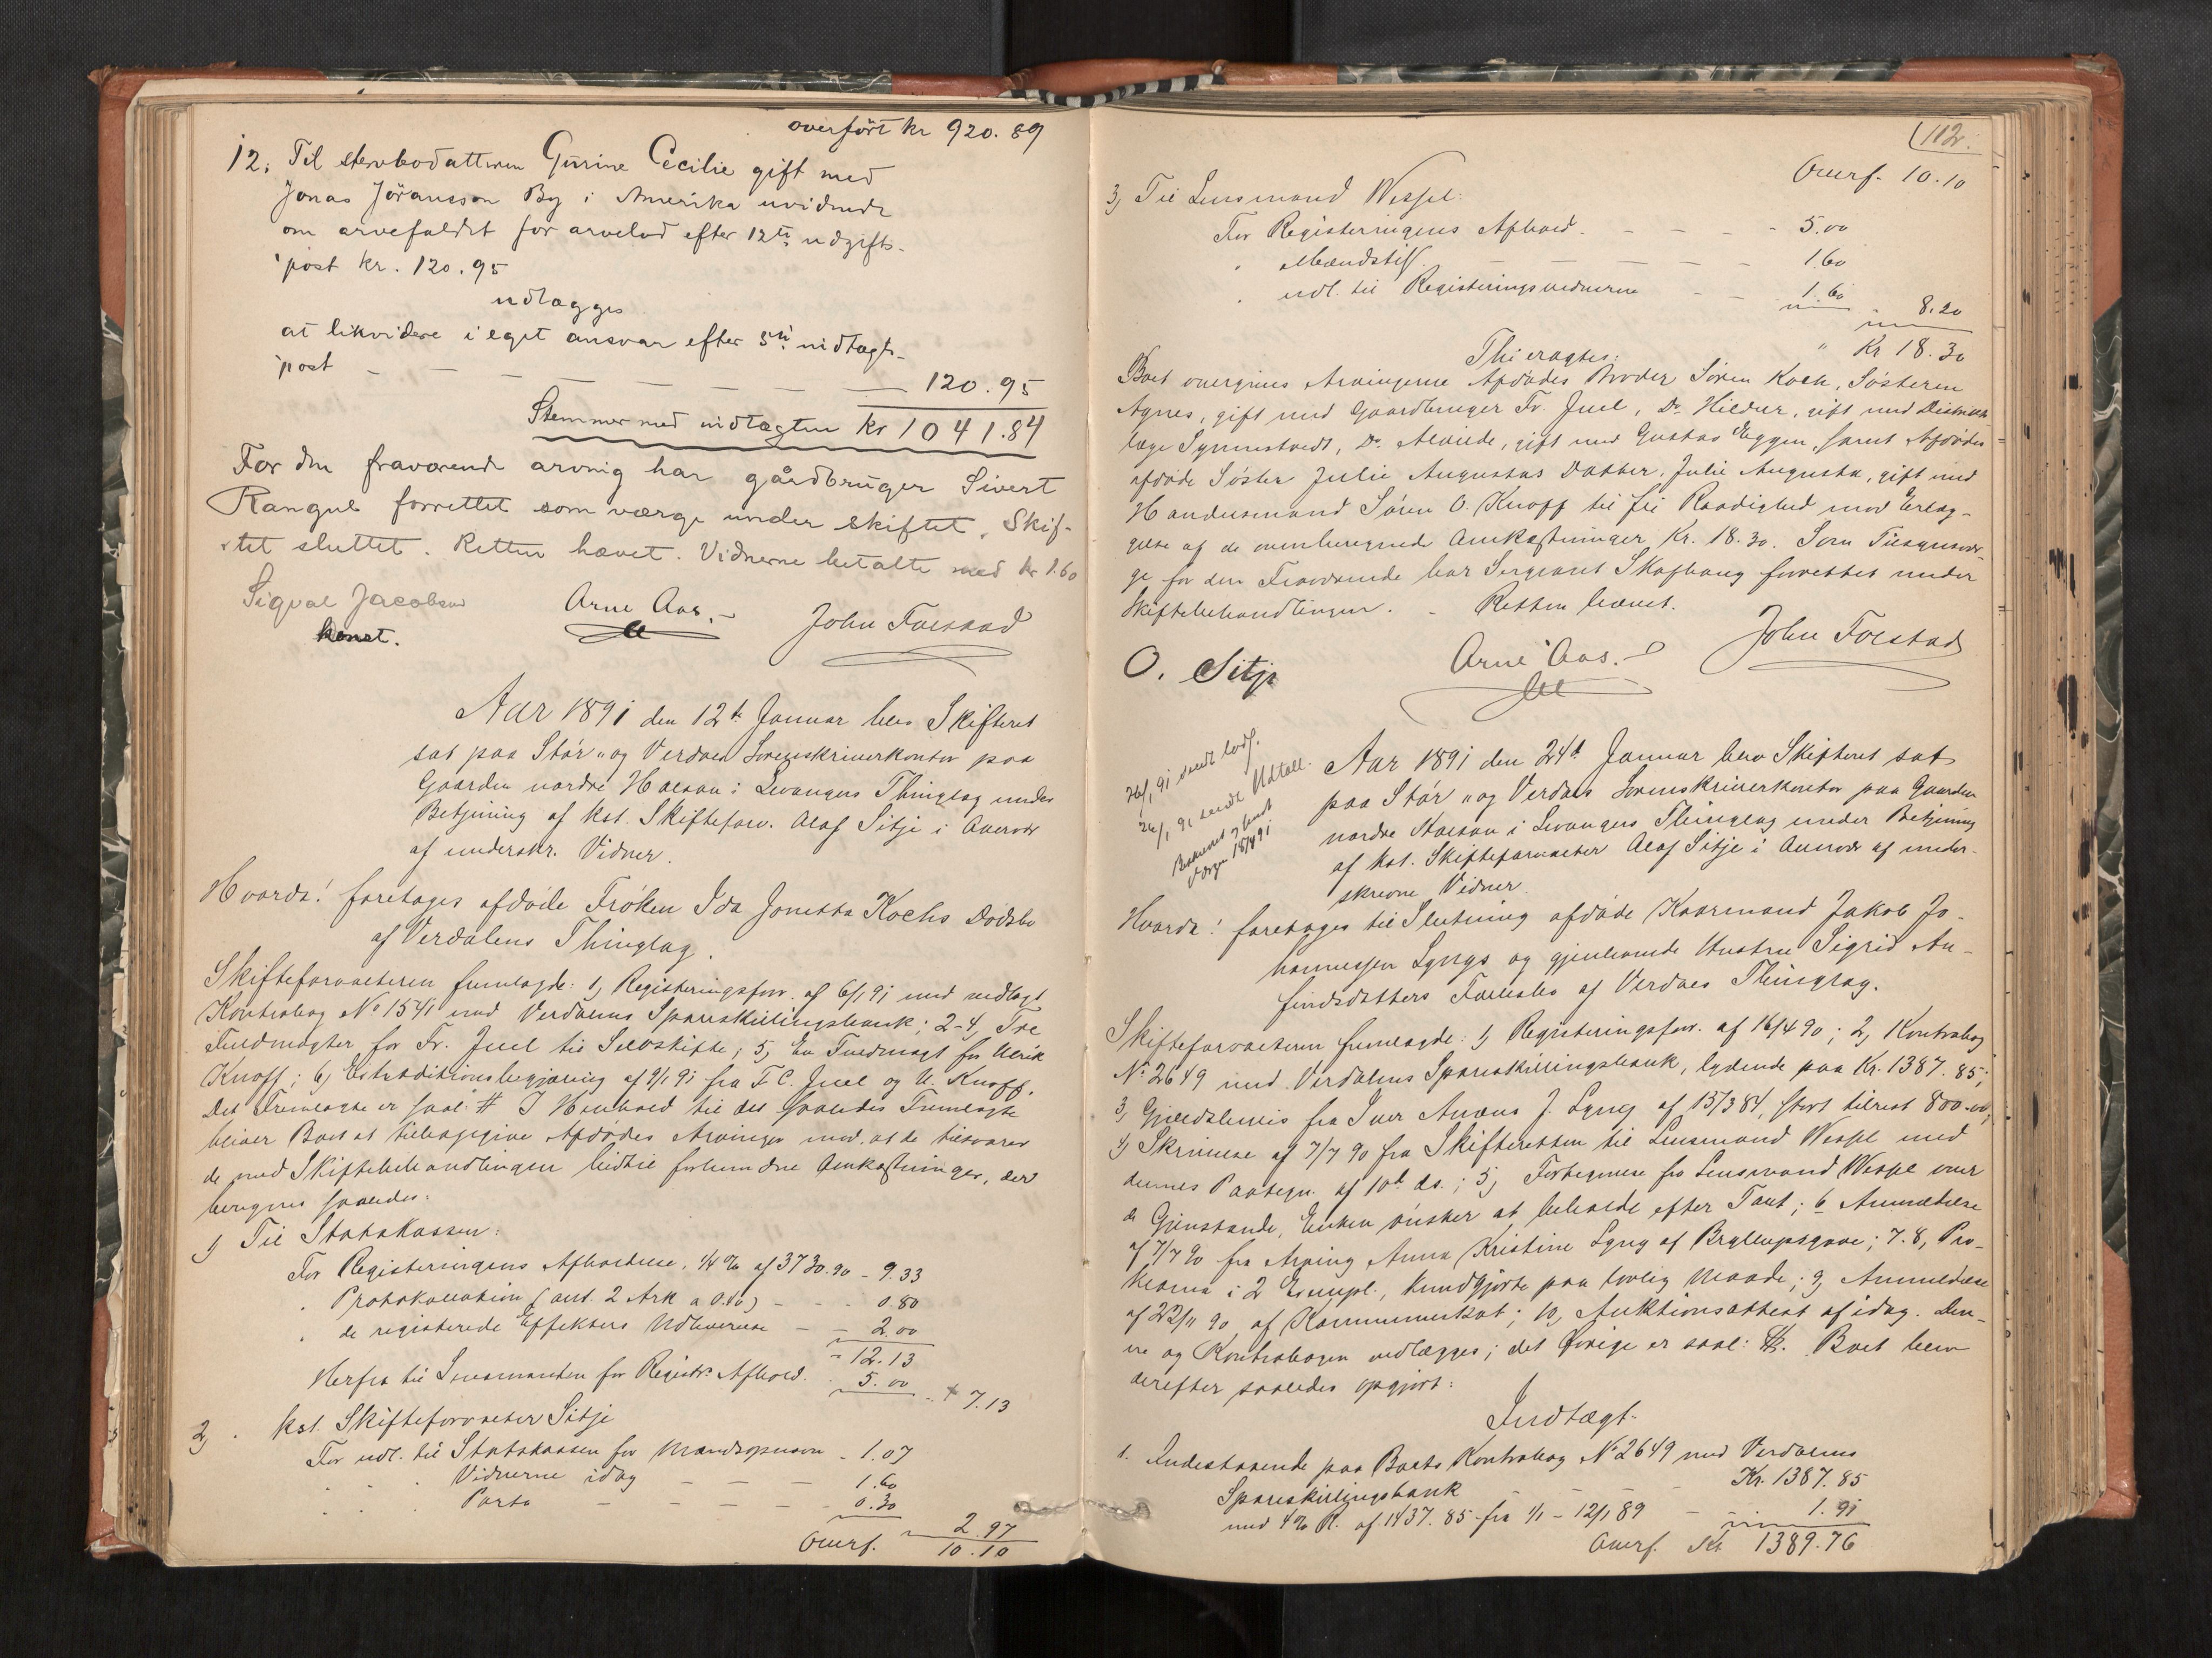 overført kr 920.89
12. Til stervbodatteren Gurine Cecilie gift med
Jonas Jöransson By i Amerika uvidende
om arvefaldet for arvelod efter 12te udgifts-
post kr. 120.95
udlægges
at likvidere i eget ansvar efter 5te indtægts-
post — — — — — — — 120.95
Stemmer med indtægten kr 1041.84
For den fraværende arving har gårdbruger Sivert
Rangul forrettet som værge under skiftet. Skif-
tet sluttet. Retten hævet. Vidnerne betalte med kr 1.60
Sigval Jacobsen
konst.
Arne Aas.
John Forstad
Aar 1891 den 12te Januar blev Skifteret
sat paa Stør- og Verdal Sorenskriverkontor paa
Gaarden nordre Halsan i Levangers Thinglag under
Betjening af kst. Skifteforv. Olaf Sitje i Overvær
af underskr. Vidner.
Hvorda! foretages afdøde Frøken Ida Jonetta Kochs Dødsbo
af Verdalens Thinglag.
Skifteforvalteren fremlagde: 1, Registeringsforr. af 6/1 91 med vedlagt
Kontrabog No 1541 med Verdalens Spareskillingsbank; 2-4, Tre
Fuldmagter for Fr. Juel til Selvskifte; 5, En Fuldmagt for Ulrik
Knoff; 6, Extraditionsbegjæring af 9/1 91 fra F. C. Juel og U. Knoff.
Det Fremlagte er saal: # I Henhold til det saaledes Fremlagte
bliver Boet at tilbagegive Afdødes Arvinger mod at de tilsvarer
de med Skiftebehandlingen hidtil forbundne Omkostninger, der
beregnes saaledes:
1) Til Statskassen:
For Registeringens Afholdelse, 1/4 % af 3730.90 - 9.33
" Protokollation (ant. 2 Ark a 0.40) - - - 0.80
" de registerede Effekters Udleverelse - - 2.00
- 12.13
Herfra til Lensmanden for Registr. Afhold. 5.00
7.13
2) kst. Skifteforvalter Sitje
For udl. til Statskassen for Mandsperson - 1.07
" " Vidnerne idag — — — 1.60
" " Porto — — — — 0.30
2.97
Overf. 10.10
112.
Overf. 10.10
3, Til Lensmand Wessel:
For Registeringens Afhold - — — - 5.00
" Mændstill. — — — — 1.60
" udl. til Registeringsvidnerne - - 1.60
8.20
" Kr 18.30
Thi eragtes:
Boet overgives Arvingerne Afdødes Broder Søren Koch, Søsteren
Agnes, gift med Gaardbruger Fr. Juel, Do Hildur, gift med Distrikts-
læge Synnestvedt, Do Alvilde, gift med Gustav Eggen, samt Afdødes
afdøde Søster Julie Augustas Datter, Julie Augusta, gift med
Handelsmand Søren O. Knoff til fri Raadighed mod Erlæg-
gelse af de ovenberegnede Omkostninger, Kr. 18.30. Som Tilsynsvær-
ge for den Fraværende har Sergeant Skafhaug forrettet under
Skiftebehandlingen. - Retten hævet.
O. Sitje
Arne Aas.
John Forstad
26/1 91 sendt
26/1 91 sendt Udtall.
Aar 1891 den 24de Januar blev Skifteret sat
paa Stør- og Verdals Sorenskriverkontor paa Gaarden
nordre Halsan i Levangers Thinglag under Betjening
af kst. Skifteforvalter Olaf Sitje i Overvær af under-
skrevne Vidner.
Hvorda! foretages til Slutning afdøde Kaarmand Jakob Jo-
hannessen Lyngs og gjenlevende Hustru Sigrid An-
findsdatters Fællesbo af Verdals Thinglag.
Skifteforvalteren fremlagde: 1, Registeringsforr. af 16/4 90; 2, Kontrabog
No 2649 med Verdalens Spareskillingsbank, lydende paa Kr. 1387.85;
3, Gjældsbevis fra Iver Anæus J. Lyng af 13/3 84, stort tilrest 800.00;
4, Skrivelse af 7/7 90 fra Skifteretten til Lensmand Wessel med
dennes Paategn. af 10de ds.; 5, Fortegnelse fra Lensmand Wessel over
de Gjenstande, Enken ønsker at beholde efter Taxt; 6 Anmeldelse
af 7/7 90 fra Arving Anna Kristine Lyng af Bryllupsgave; 7-8, Pro-
klama i 2 Exempl., kundgjorte paa lovlig Maade; 9, Anmeldelse
af 22/11 90 af Kommuneskat; 10, Auktionsattest af idag. Den-
ne og Kontrabogen vedlægges; det Øvrige er saal: #. Boet blev
derefter saaledes opgjort:
Indtægt.
1. Indestaaende paa Boets Kontrabog No 2649 med Verdalens
Spareskillingsbank - - - Kr. 1387.85
med 4% R. af 1437.85 fra 1/1 - 12/1 89 - 1.91
Overf. Kr. 1389.76